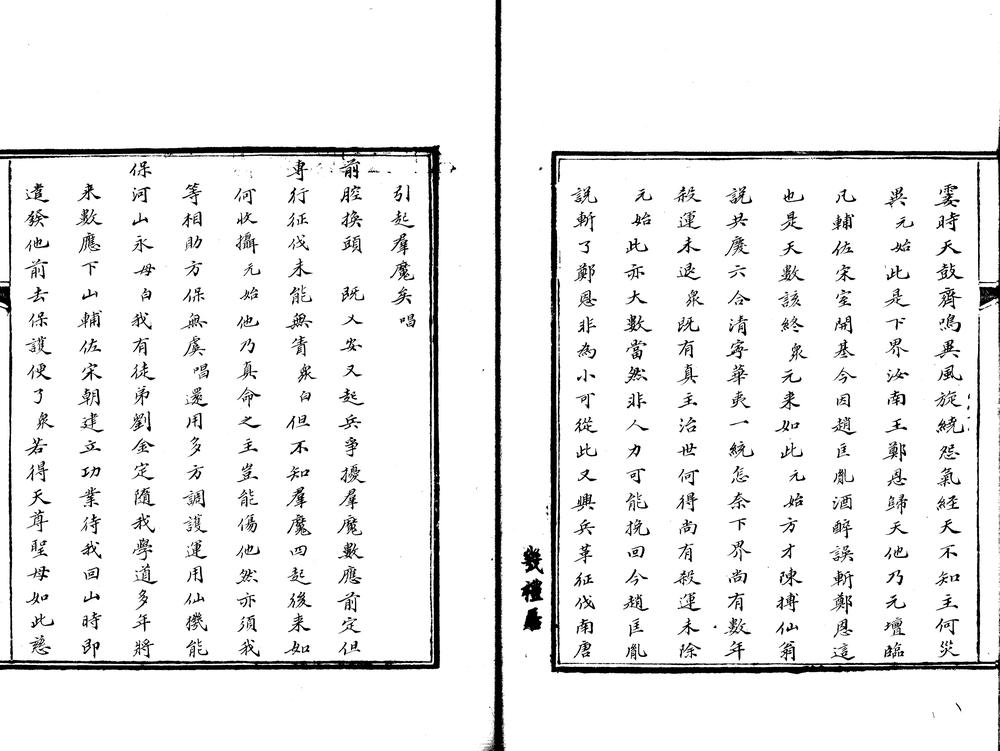 霎時天鼓齊鳴異風旋繞怨氣經天不知主何災
異元始此是下界汝南王鄭恩歸天他乃元壇臨
凡輔佐宋室開基今因趙匡胤酒醉誤斬鄭恩這
也是天數該終衆元来如此元始方才陳摶仙翁
說共慶六合清寧華夷一統怎奈下界尚有數年
殺運未退衆既有真主治世何得尚有殺運未除
元始此亦大數當然非人力可能挽回今趙匡胤
說斬了鄭恩非為小可從此又興兵革征伐南唐
引起羣魔矣唱
前腔換頭 既乂安又起兵爭擾羣魔數應前定但
專行征伐未能無眚衆白但不知羣魔四起後来如
何收攝元始他乃真命之主豈能傷他然亦須我
等相助方保無虞唱還用多方調護運用仙機能
保河山永母白我有徒弟劉金定隨我學道多年將
来數應下山輔佐宋朝建立功業待我回山時即
遣發他前去保護便了衆若得天尊聖母如此慈
禮